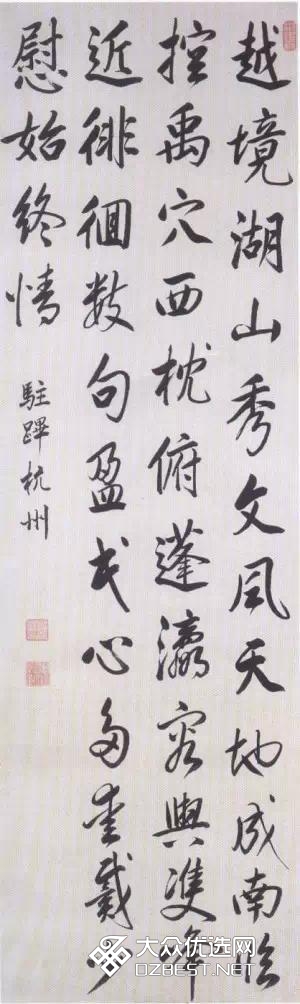 越境湖山秀文風天地成南臨
控禹穴西枕俯蓬瀛容與雙峰
近徘徊數句盈民心多愛戴少
慰始終情
駐蹕杭州
大众优选网
DZBEST.NET